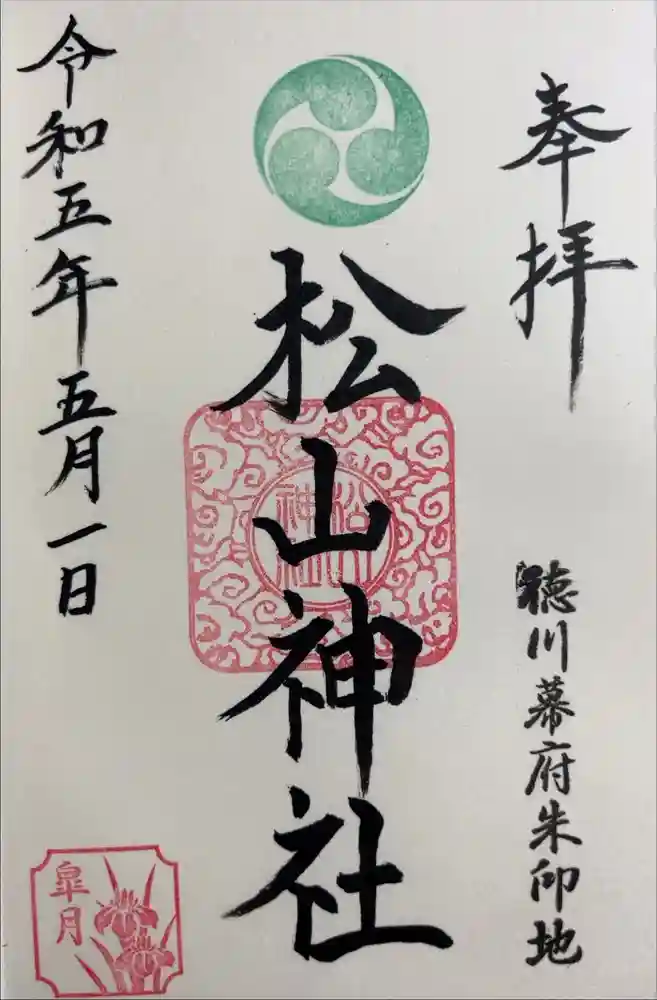 奉拝
徳川幕府朱印地
松山神社
松山神社
令和五年五月一日
皐月